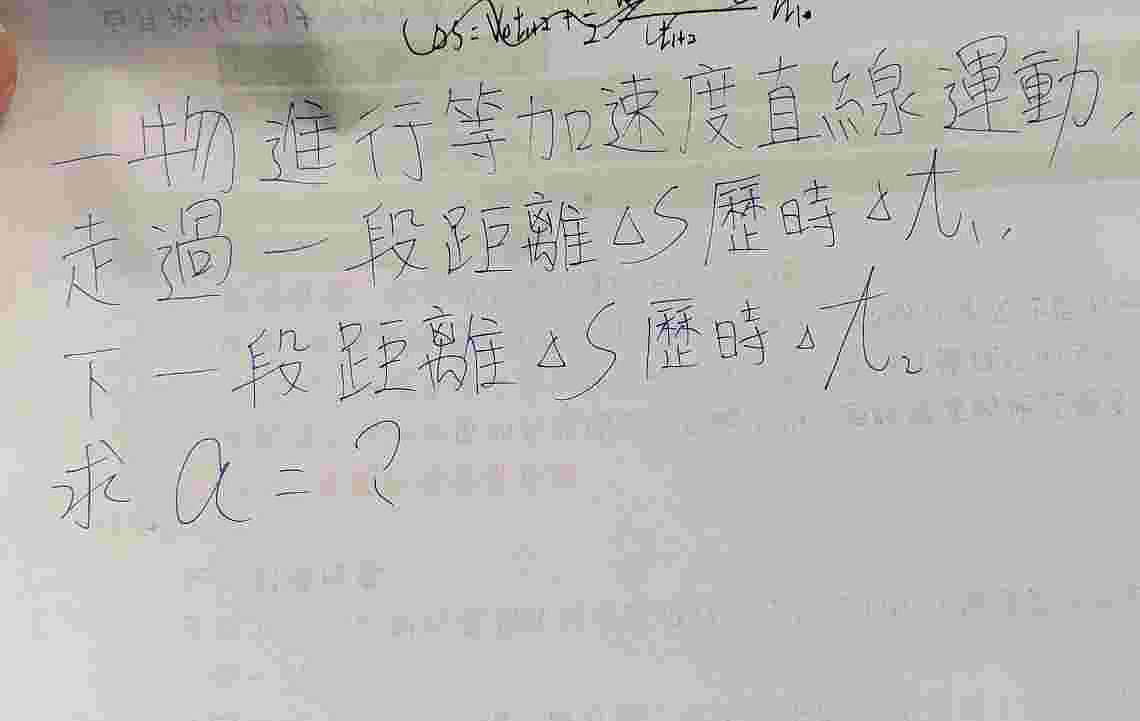 一物進行等加速度直線運動,
走過一段距離△S歷時△t₁,
下一段距離△S歷時△t₂
求 a = ?